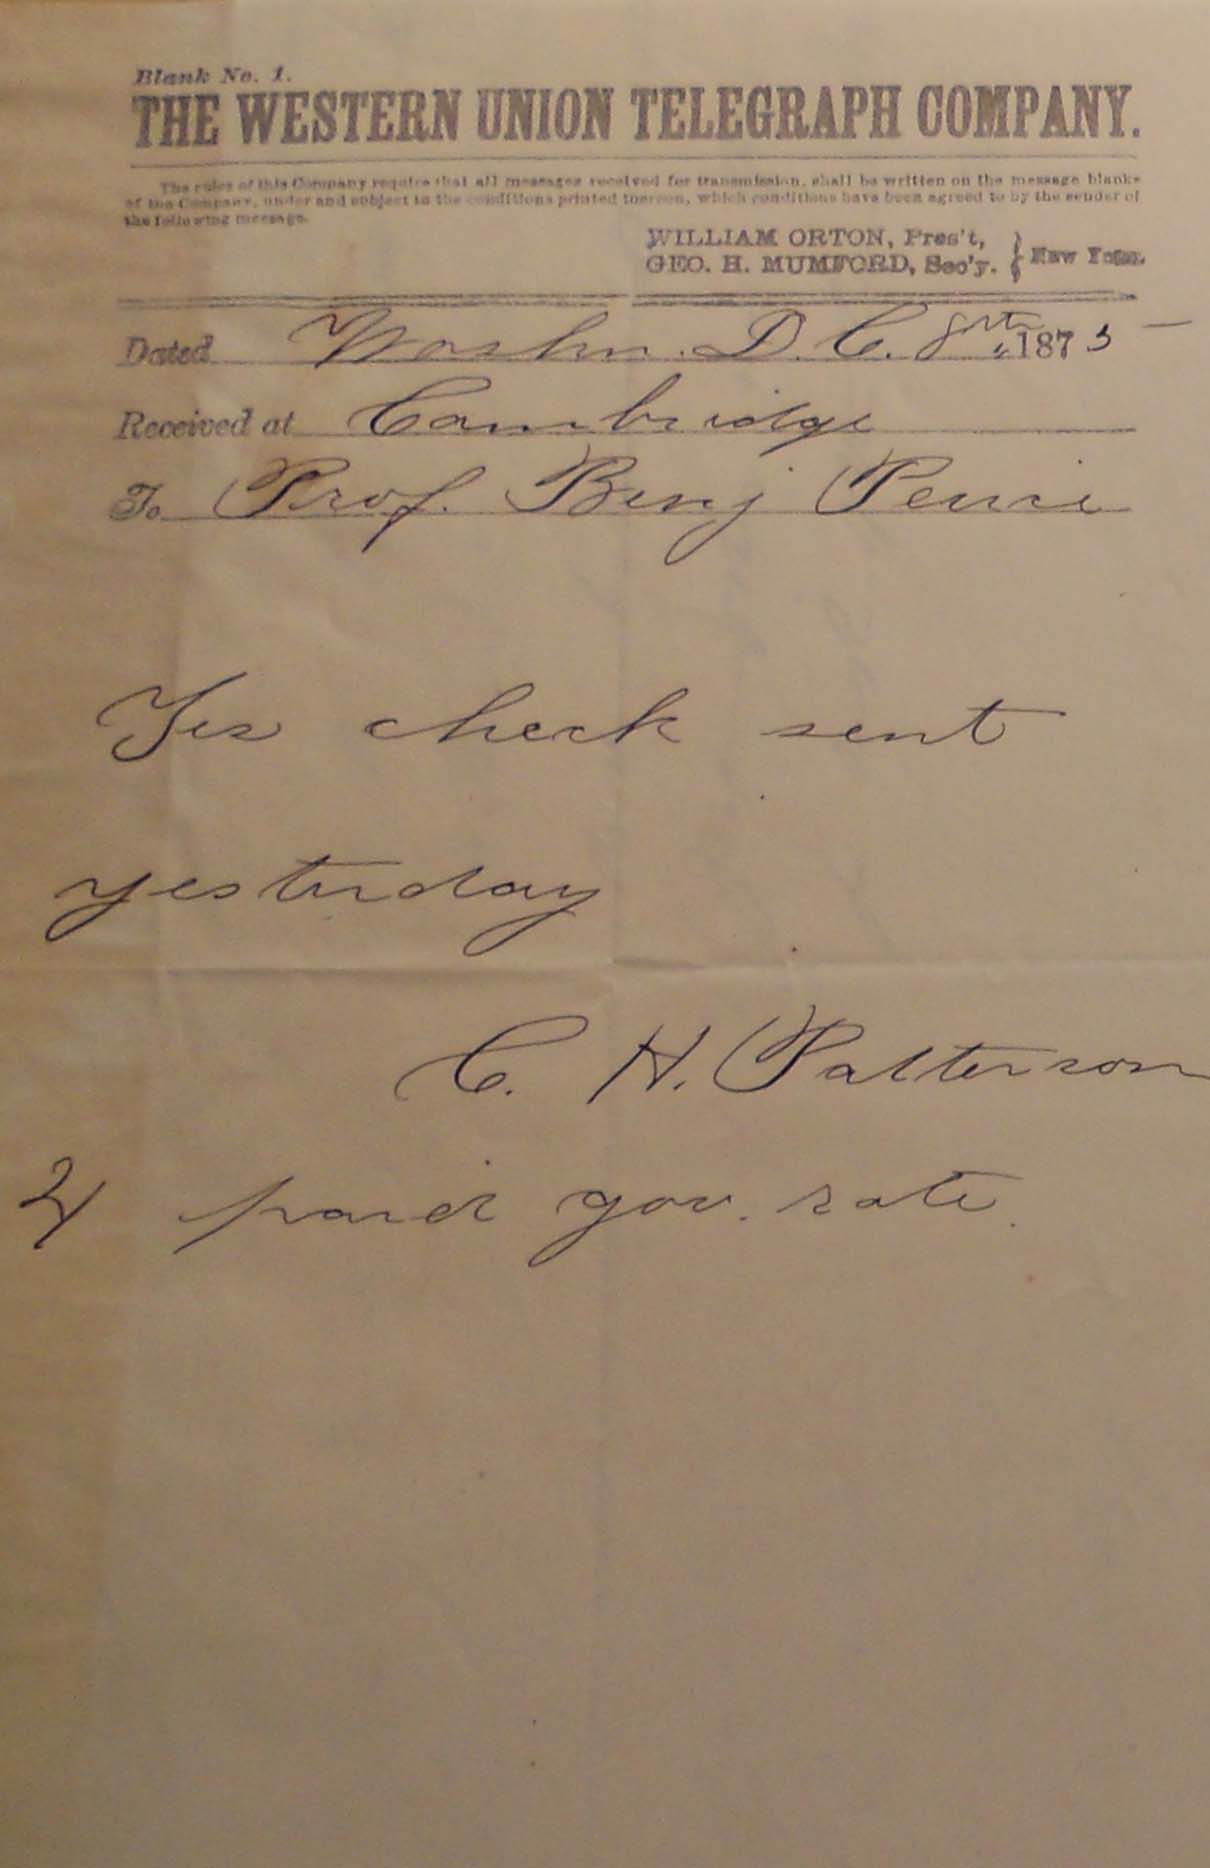 Blank No. 1.
THE WESTERN UNION TELEGRAPH COMPANY.
The rules of this Company require that all messages received for transmission, shall be written on the message blanks
of the Company, under and subject to the conditions printed thereon, which conditions have been agreed to by the sender of
the following message.
WILLIAM ORTON, Pres't,
GEO. H. MUMFORD, Sec'y. } New York.
Dated Washn. D. C. 8 1873
Received at Cambridge
To Prof. Benj Peirce
Yes check sent
yesterday
C. H. Patterson
paid gov. rate.